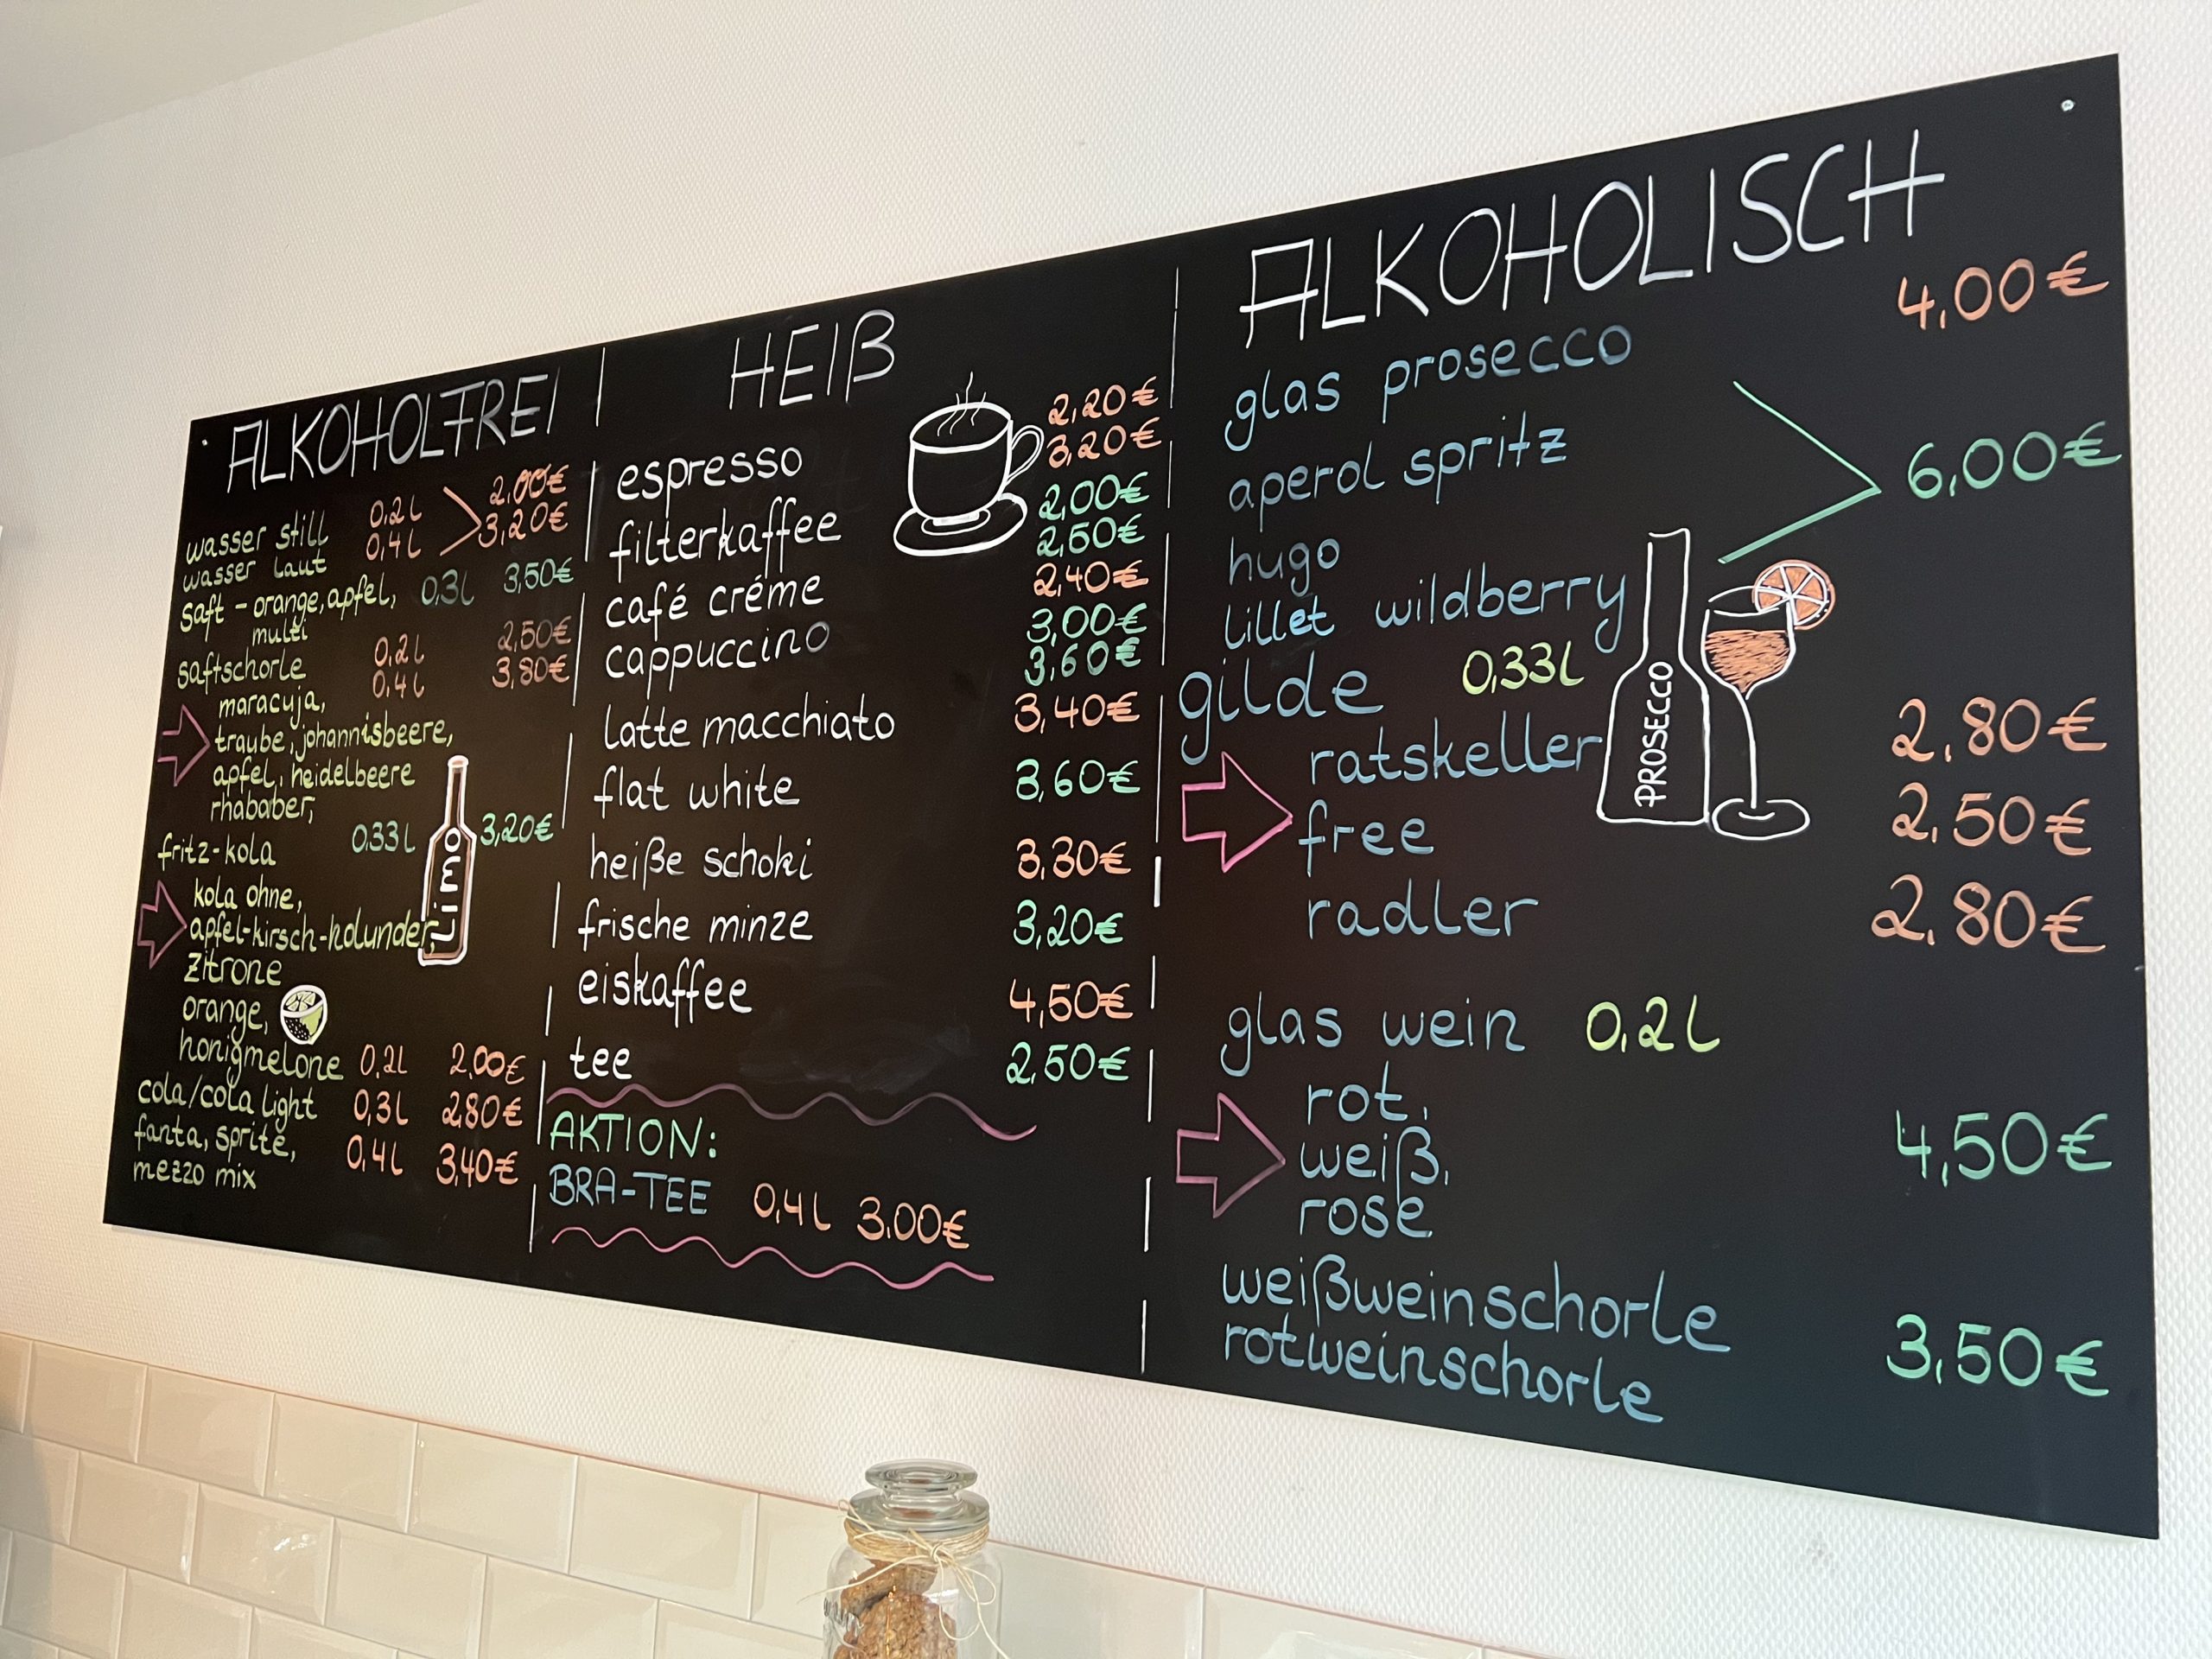 ALKOHOLFREI
wasser still 0,2l 2,00€
wasser laut 0,4l 3,20€
saft - orange, apfel, 0,3l 3,50€
multi
saftschorle 0,2l 2,50€
0,4l 3,80€
maracuja,
traube, johannisbeere,
apfel, heidelbeere
rhababer,
fritz-kola 0,33l 3,20€
Limo
kola ohne,
apfel-kirsch-holunder,
zitrone
orange,
honigmelone
cola/cola light 0,2l 2,00€
fanta, sprite, 0,3l 2,80€
mezzo mix 0,4l 3,40€
HEIß
espresso 2,20€
3,20€
filterkaffee 2,00€
2,50€
café créme 2,40€
cappuccino 3,00€
3,60€
latte macchiato 3,40€
flat white 3,60€
heiße schoki 3,30€
frische minze 3,20€
eiskaffee 4,50€
tee 2,50€
AKTION:
BRA-TEE 0,4l 3.00€
ALKOHOLISCH
glas prosecco 4,00€
aperol spritz
hugo 6,00€
lillet wildberry
PROSECCO
gilde 0,33l
ratskeller 2,80€
free 2,50€
radler 2,80€
glas wein 0,2l
rot,
weiß, 4,50€
rose
weißweinschorle
rotweinschorle 3,50€